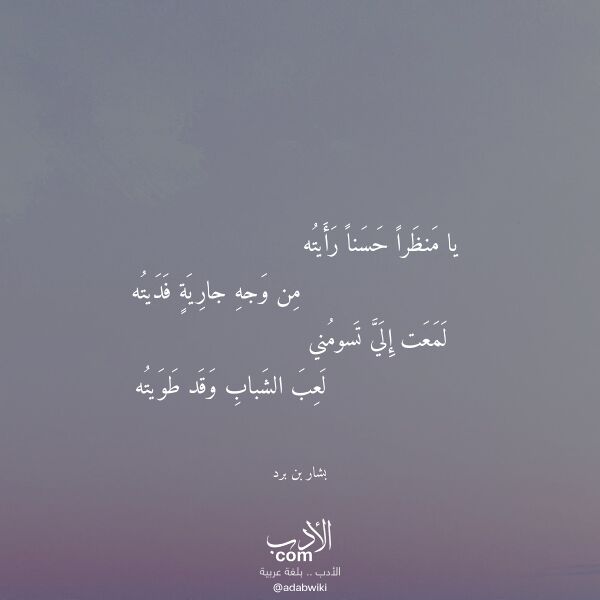 يا مَنظَراً حَسَناً رَأَيتُه
مِن وَجهِ جارِيَةٍ فَدَيتُه
لَمَعَت إِلَيَّ تَسومُني
لَعِبَ الشَبابِ وَقَد طَوَيتُه
بشار بن برد
الأدب
com
الأدب .. بلغة عربية
@adabwiki